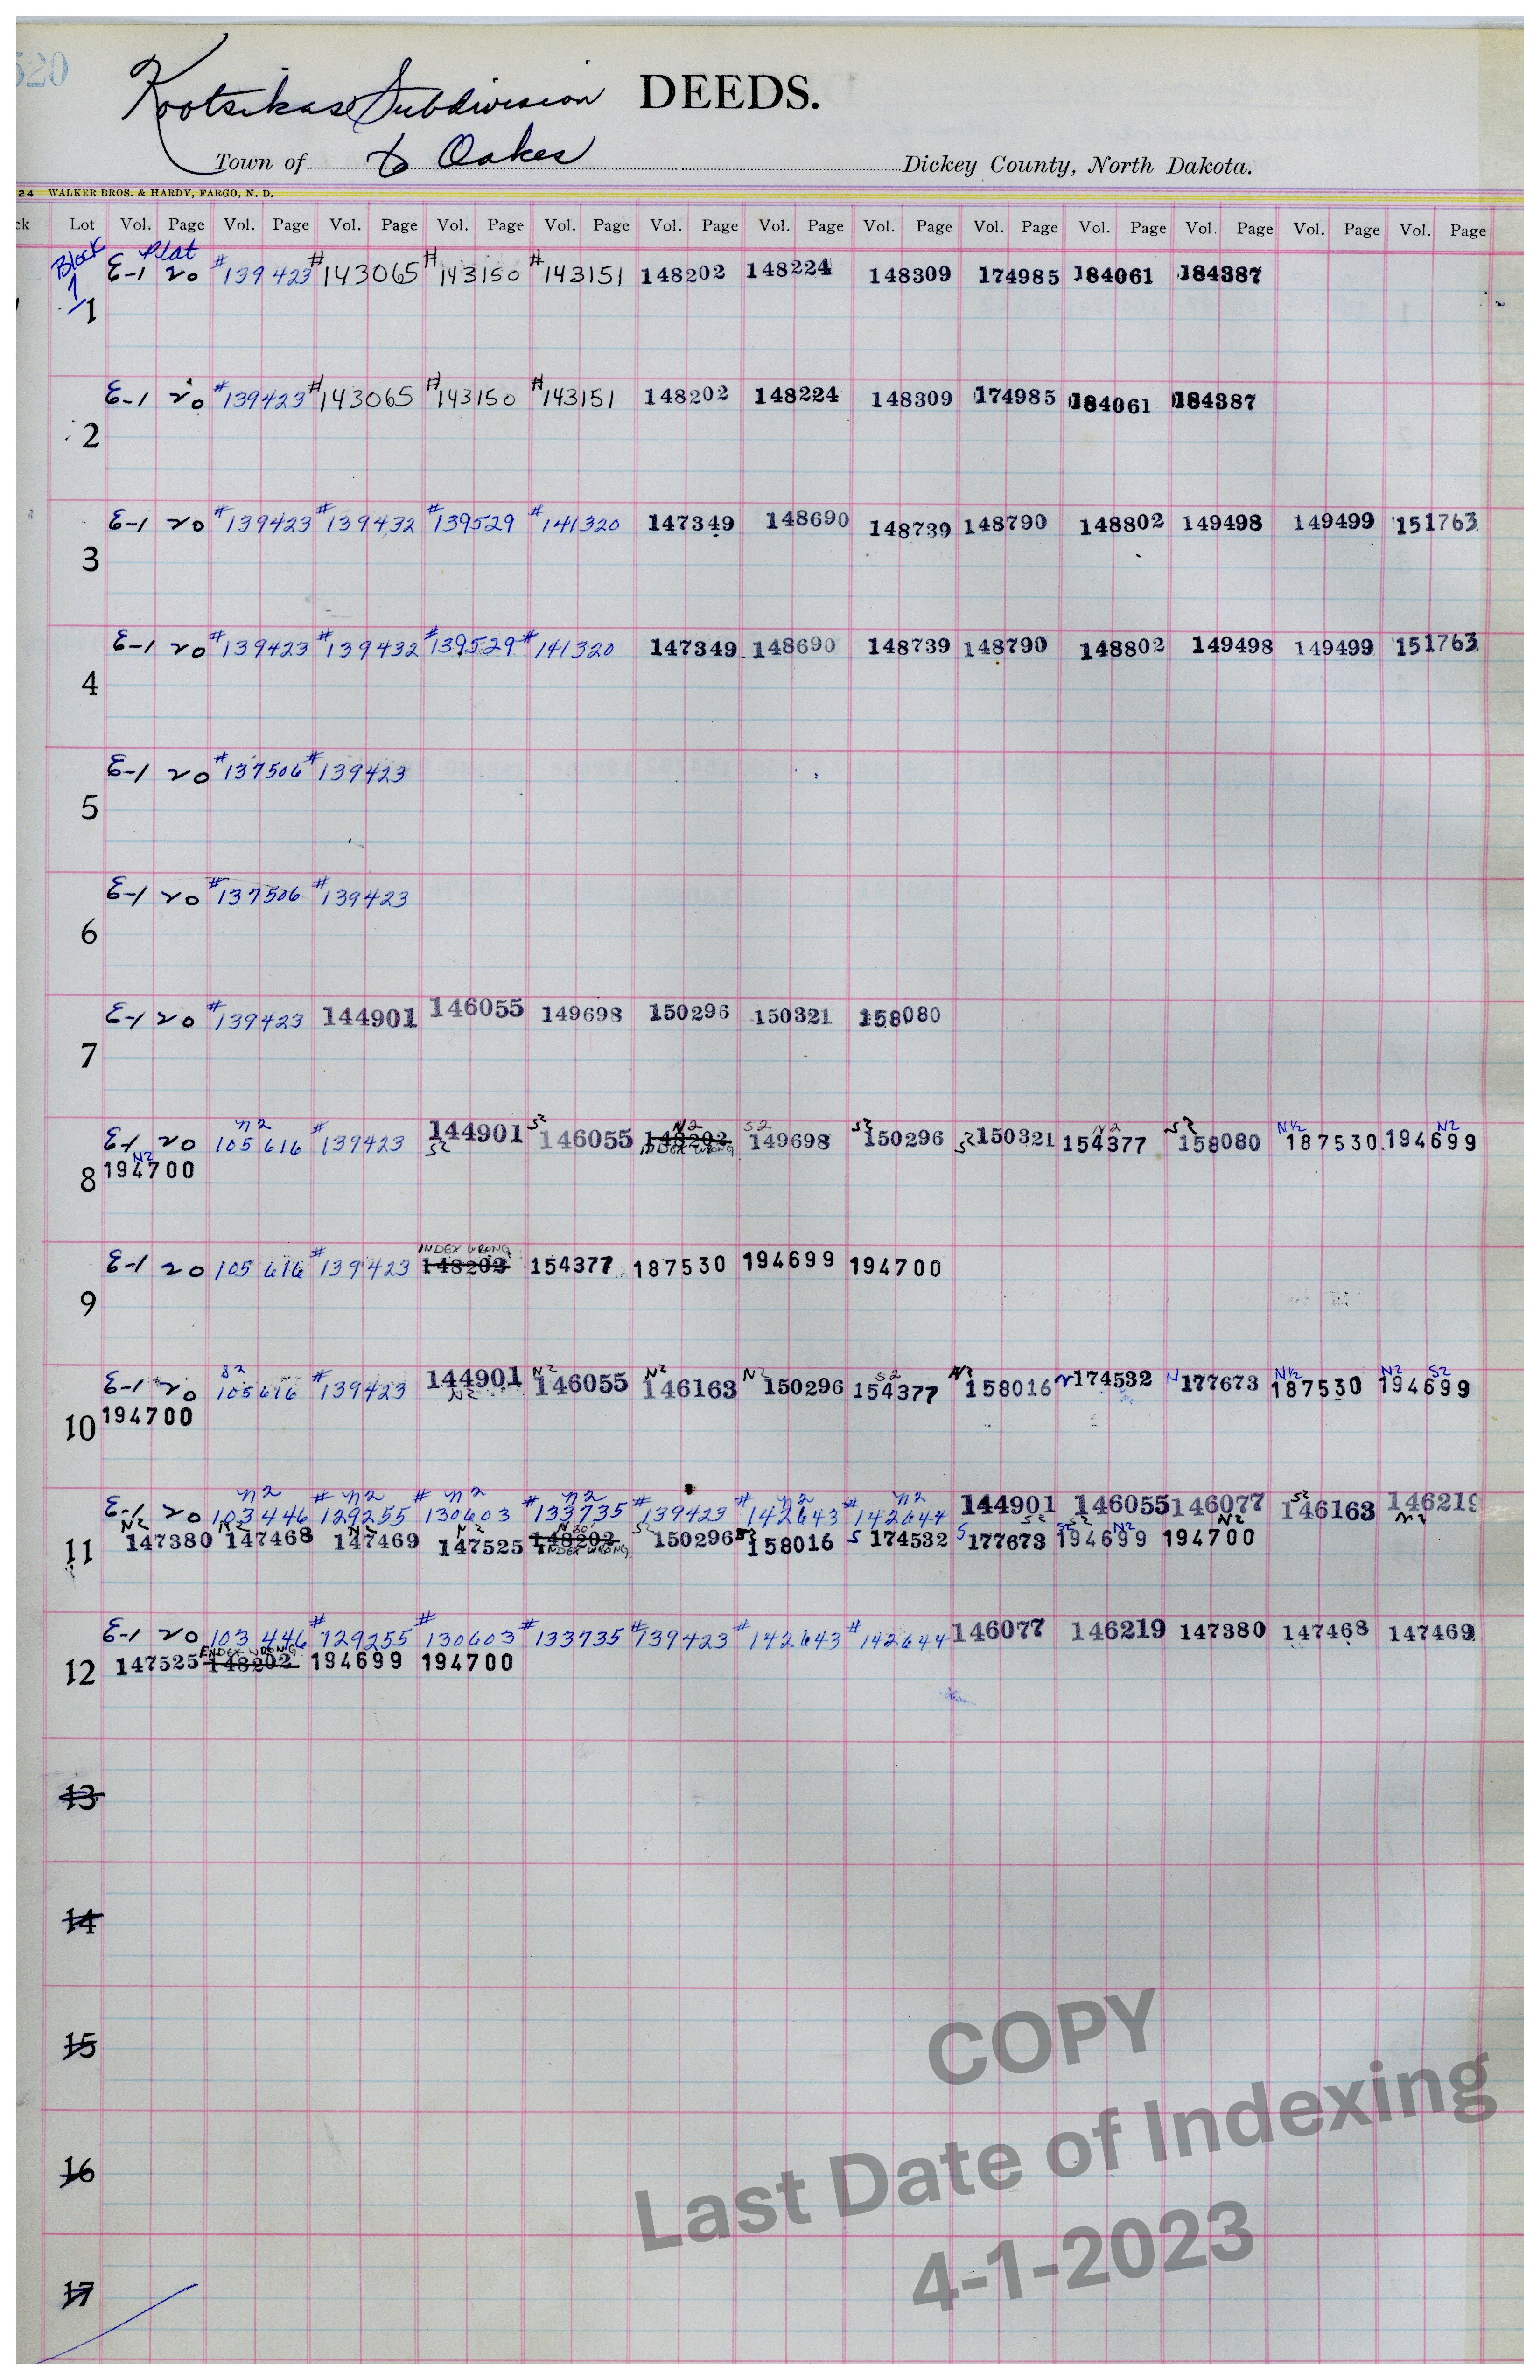 520
Kootsikas Subdivision DEEDS.
Town of to Oakes Dickey County, North Dakota.
24 WALKER BROS. & HARDY, FARGO, N. D.
ck Lot Vol. Page Vol. Page Vol. Page Vol. Page Vol. Page Vol. Page Vol. Page Vol. Page Vol. Page Vol. Page Vol. Page Vol. Page Vol. Page
Block 1 Plat
E-1 20 #139423 #143065 #143150 #143151 148202 148224 148309 174985 184061 184387
1
E-1 20 #139423 #143065 #143150 #143151 148202 148224 148309 174985 184061 184387
2
E-1 20 #139423 #139432 #139529 #141320 147349 148690 148739 148790 148802 149498 149499 151763
3
E-1 20 #139423 #139432 #139529 #141320 147349 148690 148739 148790 148802 149498 149499 151763
4
E-1 20 #137506 #139423
5
E-1 20 #137506 #139423
6
E-1 20 #139423 144901 146055 149698 150296 150321 158080
7
N2 S2 N2 S2 S2 N2 S2 N½ N2
E-1 20 105616 #139423 144901 146055 148202 149698 150296 S2 150321 154377 158080 187530 194699
S2 INDEX WRONG
N2
194700
8
INDEX WRONG
E-1 20 105616 #139423 148202 154377 187530 194699 194700
9
S2 N2 N2 N2 S2 N2 N½ N2 S2
E-1 20 105616 #139423 144901 146055 146163 150296 154377 158016 N 174532 N 177673 187530 194699
N2
194700
10
N2 N2 N2 N2 N2 N2 S2
E-1 20 103446 #129255 #130603 #133735 #139423 #142643 #142644 144901 146055 146077 146163 146219
N2 N2 N2 N2 N30' S2 S2 S2 S2 S2 N2 N2 N2
147380 147468 147469 147525 148202 150296 158016 S 174532 S 177673 194699 194700
INDEX WRONG
11
E-1 20 103446 #129255 #130603 #133735 #139423 #142643 #142644 146077 146219 147380 147468 147469
INDEX WRONG
147525 148202 194699 194700
12
13
14
15
16
17
COPY
Last Date of Indexing
4-1-2023